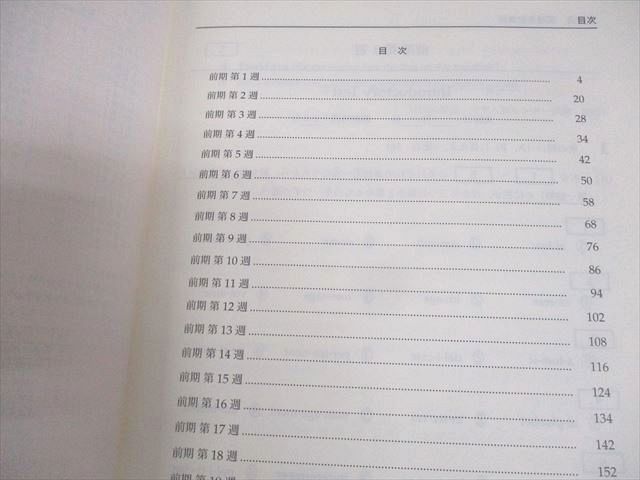 目次
目 次
前期 第 1 週 4
前期 第 2 週 20
前期 第 3 週 28
前期 第 4 週 34
前期 第 5 週 42
前期 第 6 週 50
前期 第 7 週 58
前期 第 8 週 68
前期 第 9 週 76
前期 第 10 週 86
前期 第 11 週 94
前期 第 12 週 102
前期 第 13 週 108
前期 第 14 週 116
前期 第 15 週 124
前期 第 16 週 134
前期 第 17 週 142
前期 第 18 週 152
前期 第 19 週